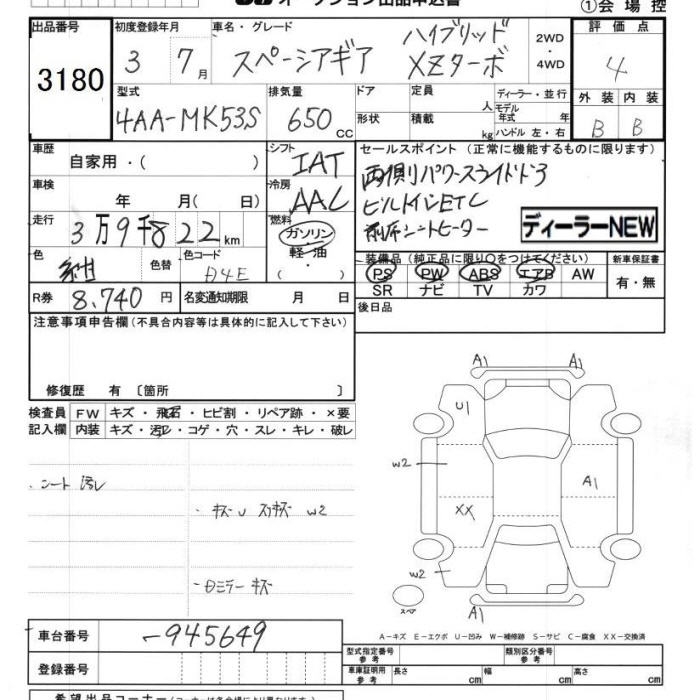 オークション出品申込書
①会場控
出品番号
3180
初度登録年月
3 7月
車名・グレード
スペーシアギア ハイブリッド XZターボ
2WD
・
4WD
評価点
4
型式
4AA-MK53S
排気量
650 CC
ドア
形状
定員 人
積載 kg
ディーラー・並行
モデル年式 年
ハンドル 左・右
外装 内装
B B
車歴
自家用・( )
シフト
IAT
セールスポイント (正常に機能するものに限ります)
両側パワースライドドア
ビルトインETC
前席シートヒーター
ディーラーNEW
車検
年 月( 日)
冷房
AAC
走行
3万9千822km
燃料
ガソリン
軽・油
( )
色
紺
色替
色コード
R券 8,740円
名変通知期限 月 日
装備品 (純正品に限り○をつけてください)
PS PW ABS エアB AW
SR ナビ TV カワ
新車保証書
有・無
後日品
注意事項申告欄(不具合内容等は具体的に記入して下さい)
修復歴 有 〔箇所 〕
検査員記入欄
FW キズ・飛石・ヒビ割・リペア跡・×要
内装 キズ・汚レ・コゲ・穴・スレ・キレ・破レ
シート 汚レ
キズU スリキズ W2
ミラー キズ
A1 A1
U1
W2
A1
XX
W2
スペア
A1
A-キズ E-エクボ U-凹み W-補修跡 S-サビ C-腐食 XX-交換済
車台番号
-945649
登録番号
型式指定番号 参考
類別区分番号 参考
車庫証明用 参考 長さ cm 幅 cm 高さ cm
希望出品コーナー